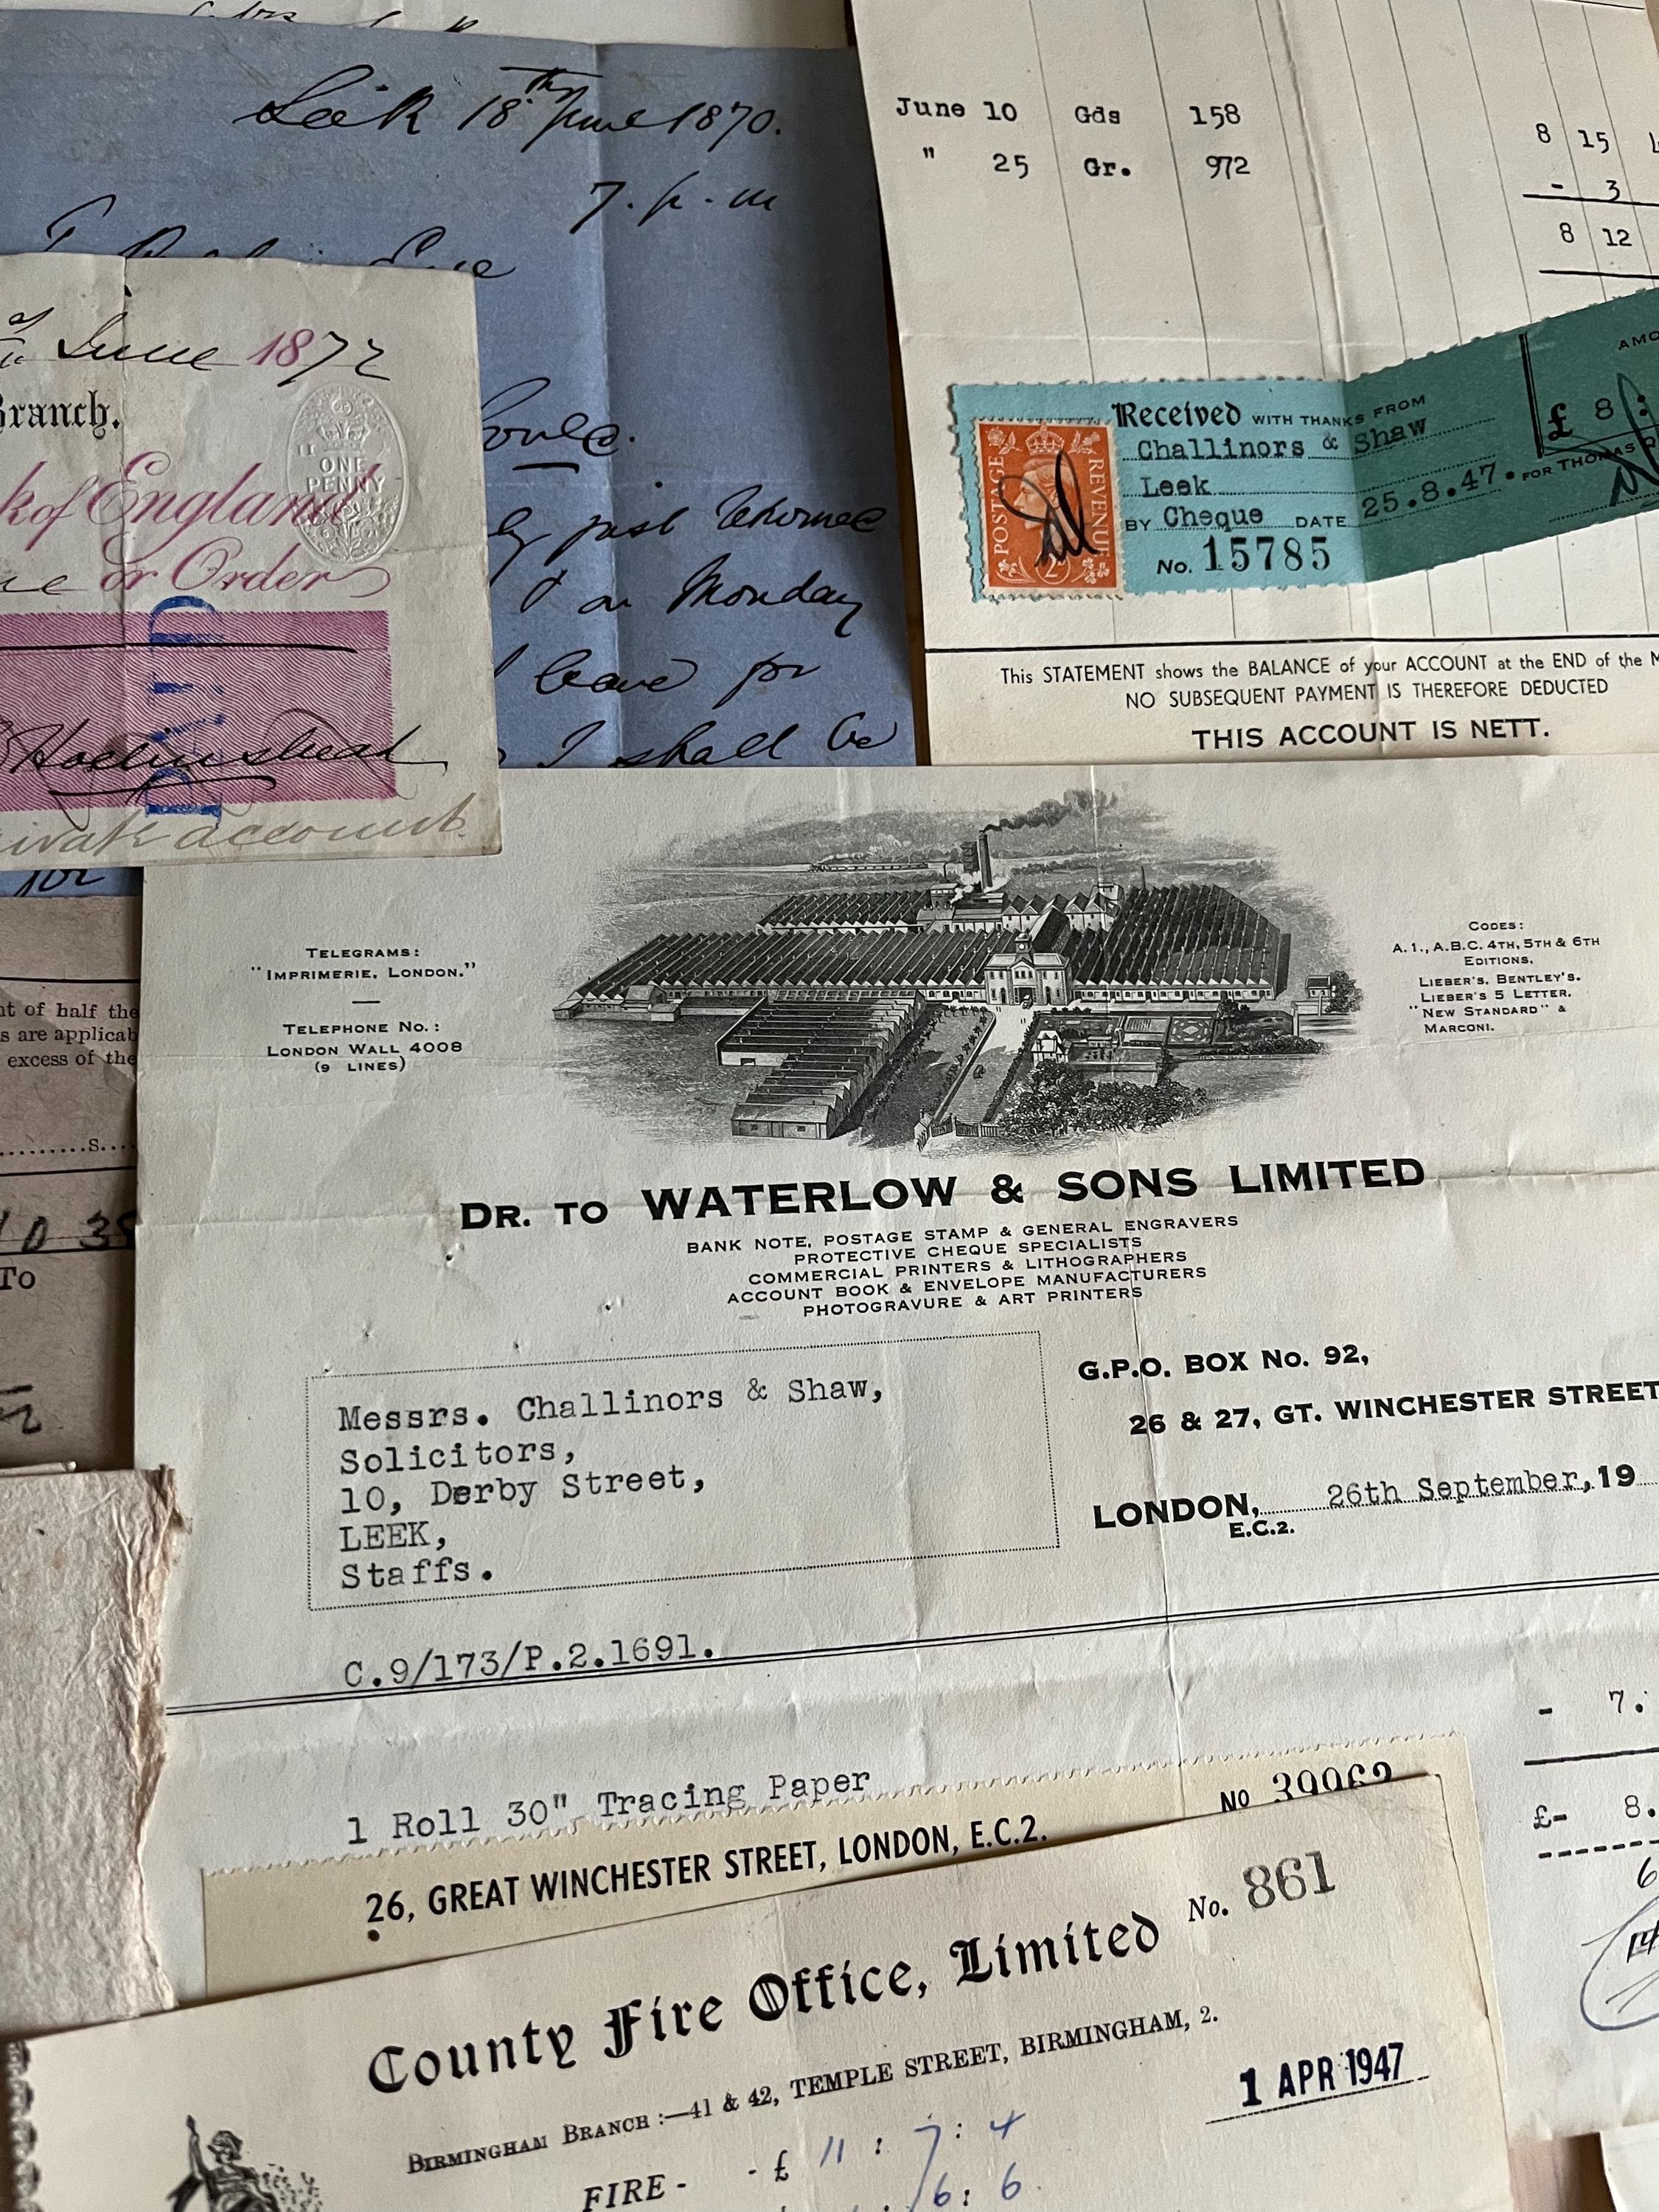 Leek 18th June 1870.
7. p. m
June 1872
Branch.
ONE
PENNY
k of England
or Order
PAID
account.
just returned
on Monday
leave for
I shall be
for
June 10 Gds 158
" 25 Gr. 972
8 15
- 3
8 12
AMO
Received WITH THANKS FROM
Challinors & Shaw
Leek
BY Cheque DATE 25.8.47.
No. 15785
£ 8:
FOR THOMAS
POSTAGE
REVENUE
2
This STATEMENT shows the BALANCE of your ACCOUNT at the END of the M
NO SUBSEQUENT PAYMENT IS THEREFORE DEDUCTED
THIS ACCOUNT IS NETT.
nt of half the
s are applicab
excess of the
s....
To
TELEGRAMS:
"IMPRIMERIE, LONDON."
TELEPHONE NO.:
LONDON WALL 4008
(9 LINES)
CODES:
A.1., A.B.C. 4TH, 5TH & 6TH
EDITIONS.
LIEBER'S. BENTLEY'S.
LIEBER'S 5 LETTER.
"NEW STANDARD" &
MARCONI.
DR. TO WATERLOW & SONS LIMITED
BANK NOTE, POSTAGE STAMP & GENERAL ENGRAVERS
PROTECTIVE CHEQUE SPECIALISTS
COMMERCIAL PRINTERS & LITHOGRAPHERS
ACCOUNT BOOK & ENVELOPE MANUFACTURERS
PHOTOGRAVURE & ART PRINTERS
Messrs. Challinors & Shaw,
Solicitors,
10, Derby Street,
LEEK,
Staffs.
G.P.O. BOX No. 92,
26 & 27, GT. WINCHESTER STREET
LONDON, 26th September, 19
E.C.2.
C.9/173/P.2.1691.
- 7.
1 Roll 30" Tracing Paper
£- 8.
6
26, GREAT WINCHESTER STREET, LONDON, E.C.2.
NO 39962
County Fire Office, Limited
No. 861
BIRMINGHAM BRANCH:—41 & 42, TEMPLE STREET, BIRMINGHAM, 2.
1 APR 1947
FIRE - - £ 11 : 7 : 4
6 : 6